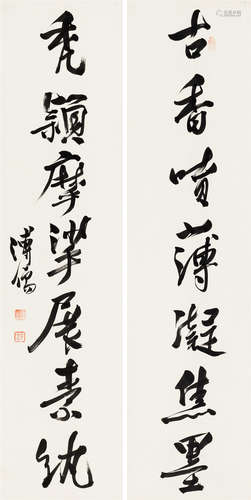 古香噴薄凝焦墨
禿穎摩挲展素紈
溥儒